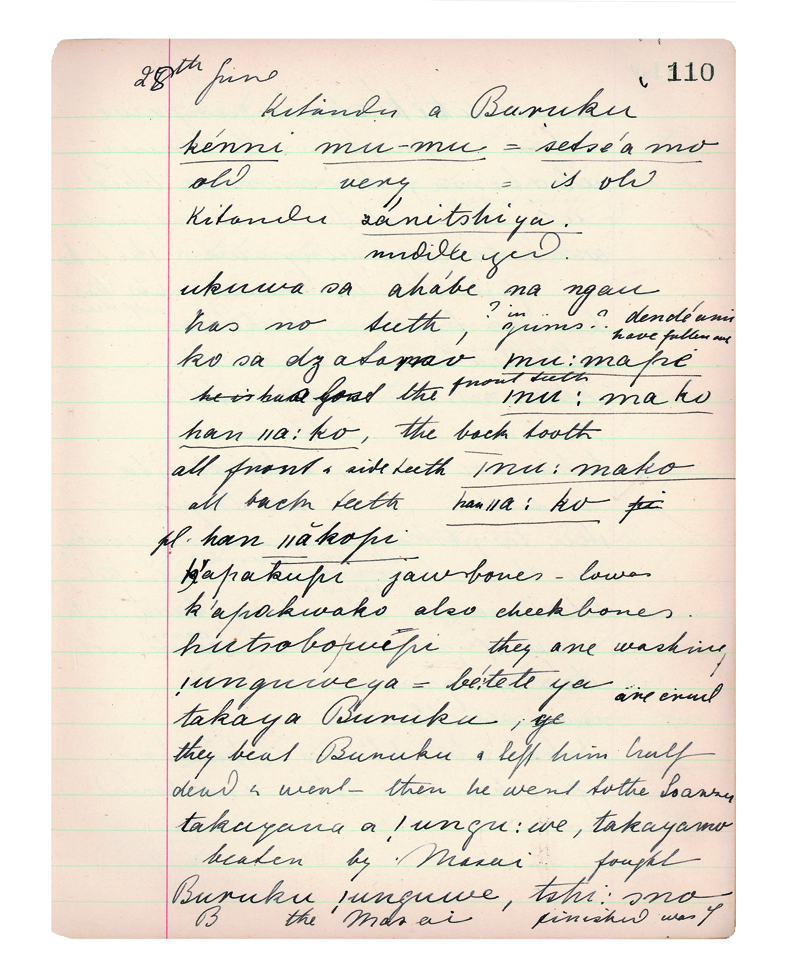 110
28th June
Kitandu a Buruku
kénni mu-mu = setséa mo
old very = is old
Kitandu zánitshiya.
middle aged.
ukuwa sa ahábe na ngau
has no teeth, ? in gums? dendéamu
have fallen out
ko sa dzatamo mu:mapé
the front teeth mu: mako
han ||a: ko, the back tooth
all front & side teeth mu: mako
all back teeth han||a: ko pi
pl. han ||ăkopi
k'apakupi jawbones - lower
k'apakwako also cheekbones.
hutsobowĕpi they are washing
!unguweya = bététe ya are cruel
takaya Buruku, ye
they beat Buruku & left him half
dead & went - then he went to the
takayana a !ungu:we, takayamo
beaten by Masai fought
Buruku !unguwe, tshi: smo
B the Masai finished was